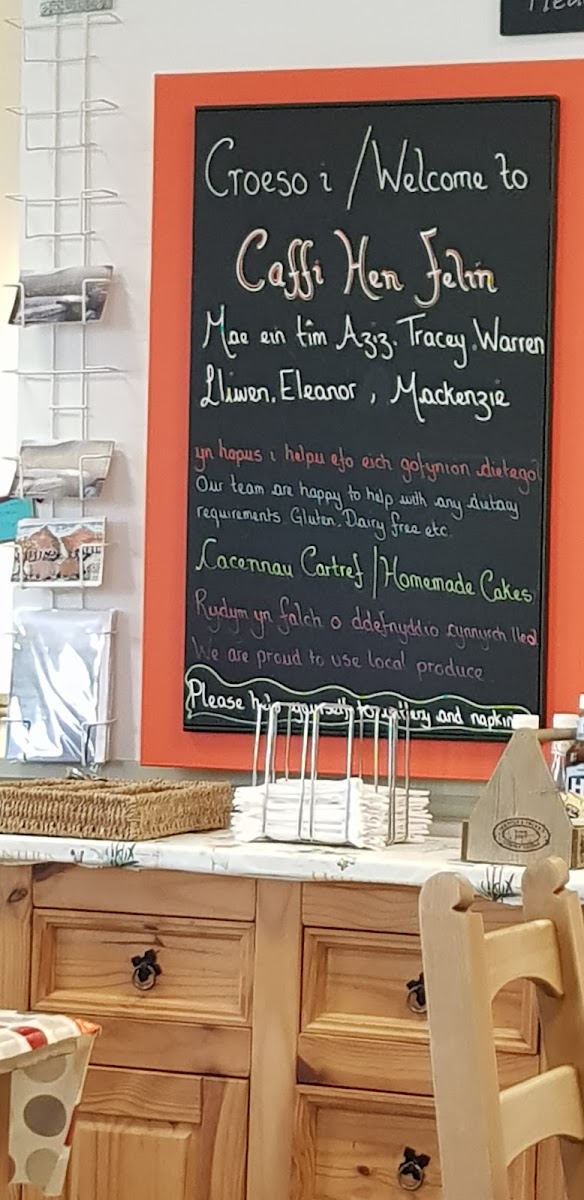 Croeso i / Welcome to
Caffi Hen Felin
Mae ein tîm Aziz. Tracey. Warren
Lliwen. Eleanor , Mackenzie
yn hapus i helpu efo eich gofynion dietegol
Our team are happy to help with any dietary
requirements Gluten. Dairy free etc.
Cacennau Cartref | Homemade Cakes
Rydym yn falch o ddefnyddio cynnyrch lleol
We are proud to use local produce
Please help yourself to cutlery and napkins